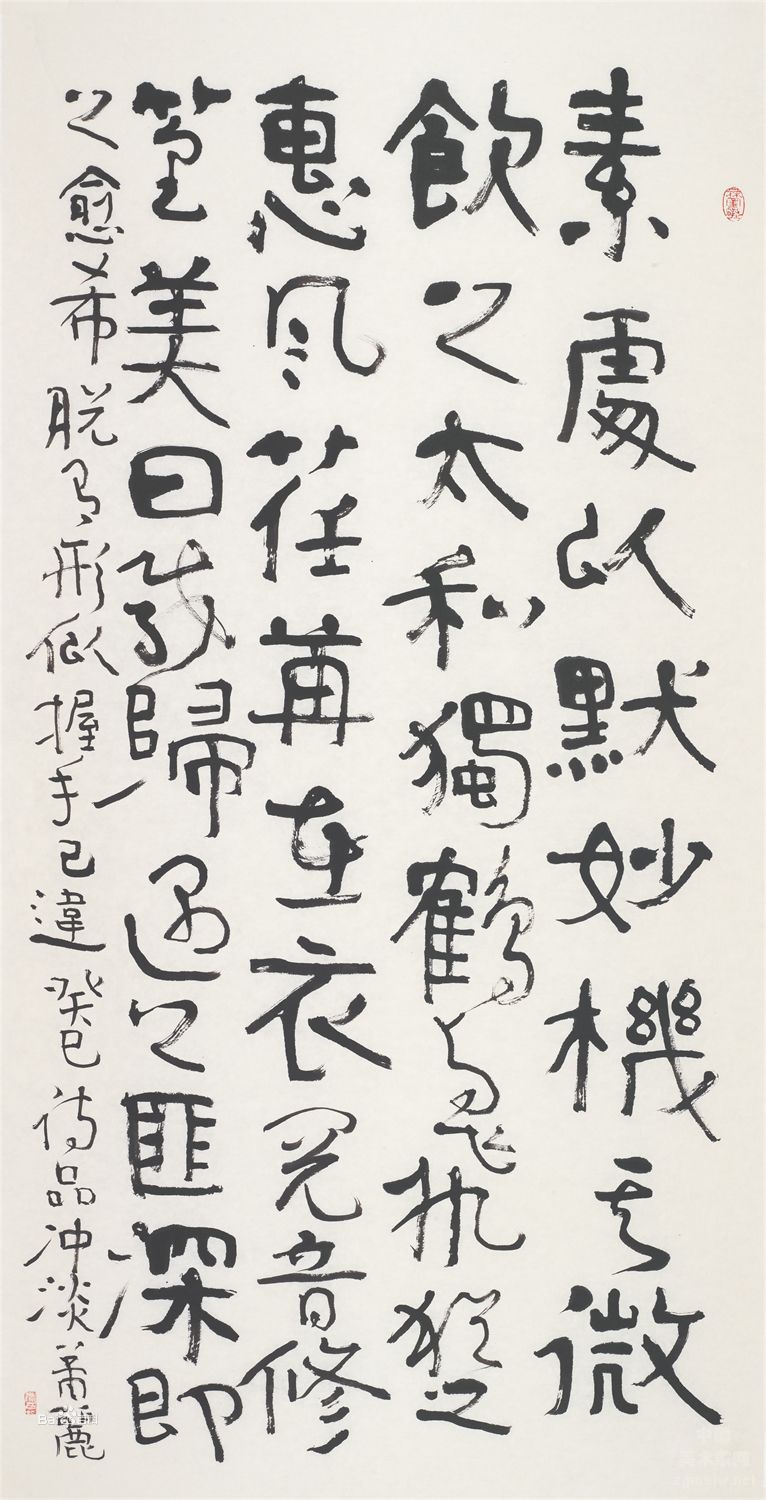 素處以默妙機其微
飲之太和獨鶴与飛执猶之
惠風荏苒在衣閱音修
篁美曰載歸遇之匪深即
之愈希脱有形似握手已違癸巳詩品冲淡麗